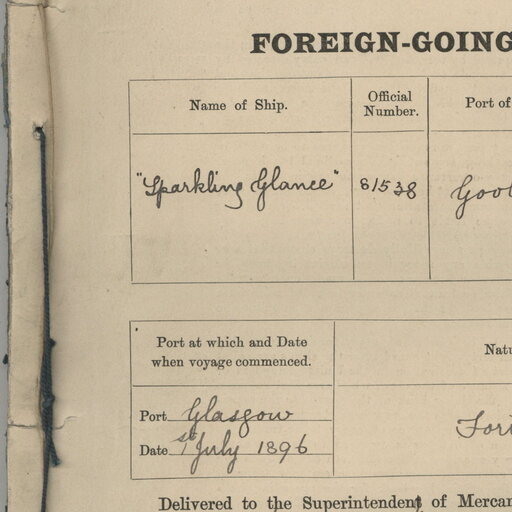 FOREIGN-GOING
Name of Ship.
Official Number.
Port of
"Sparkling Glance"
81538
Gool
Port at which and Date
when voyage commenced.
Natu
Port Glasgow
Date 1st July 1896
Fort
Delivered to the Superintendent of Mercan